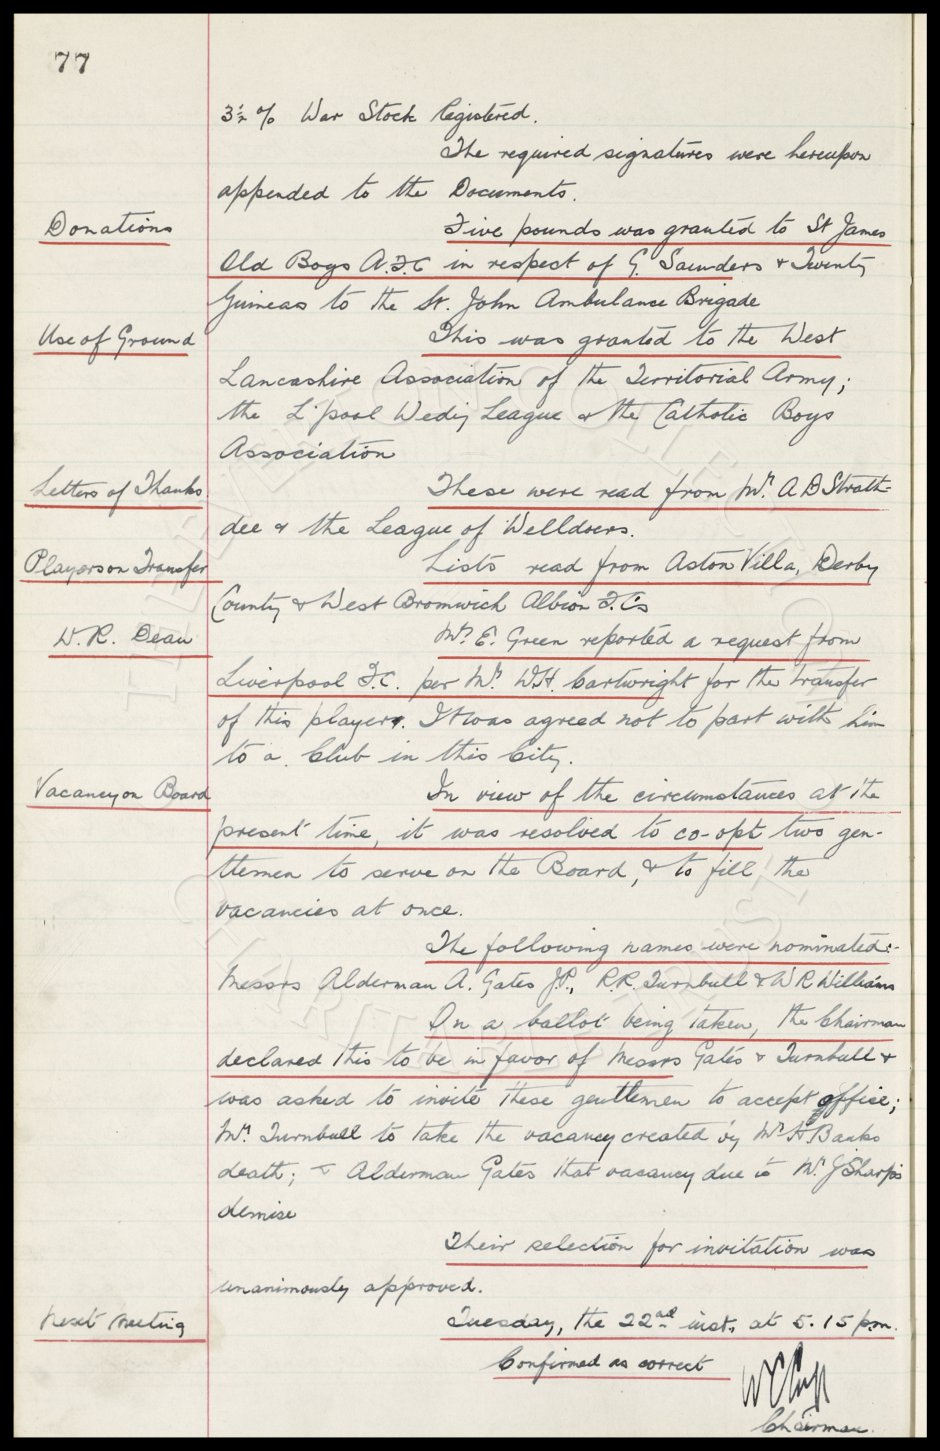 77
3½ % War Stock Registered.
The required signatures were hereupon
appended to the Documents.
Donations Five pounds was granted to St James
Old Boys A.F.C in respect of G. Saunders & Twenty
Guineas to the St. John Ambulance Brigade
Use of Ground This was granted to the West
Lancashire Association of the Territorial Army;
the L'pool Wedy League & the Catholic Boys
Association
Letters of Thanks These were read from Mr. A B Strath-
dee & the League of Welldoers.
Players on Transfer Lists read from Aston Villa, Derby
County & West Bromwich Albion F.Cs
W. R. Dean Mr. E. Green reported a request from
Liverpool F.C. per Mr. W.H. Cartwright for the transfer
of this player. It was agreed not to part with him
to a Club in this City.
Vacancy on Board In view of the circumstances at the
present time, it was resolved to co-opt two gen-
tlemen to serve on the Board, & to fill the
vacancies at once.
The following names were nominated:-
Messrs Alderman A. Gates J.P., R.R. Turnbull & W R Williams
On a ballot being taken, the Chairman
declared this to be in favor of Messrs Gates & Turnbull &
was asked to invite these gentlemen to accept office;
Mr. Turnbull to take the vacancy created by Mr H. Banks
death; & Alderman Gates that vacancy due to Mr. J Sharp's
demise
Their selection for invitation was
unanimously approved.
Next Meeting Tuesday, the 22nd inst. at 5.15 p.m.
Confirmed as correct
Chairman.